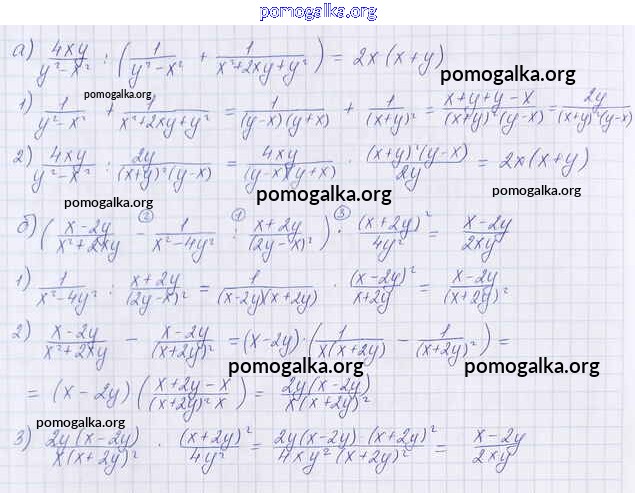 pomogalka.org
а) 4xy/(y²-x²) : (1/(y²-x²) + 1/(x²+2xy+y²)) = 2x(x+y)
pomogalka.org
pomogalka.org
1) 1/(y²-x²) + 1/(x²+2xy+y²) = 1/((y-x)(y+x)) + 1/(x+y)² = (x+y+y-x)/((x+y)²(y-x)) = 2y/((x+y)²(y-x))
2) 4xy/(y²-x²) : 2y/((x+y)²(y-x)) = 4xy/((y-x)(y+x)) · ((x+y)²(y-x))/2y = 2x(x+y)
pomogalka.org
pomogalka.org
pomogalka.org
② ① ③
б) ((x-2y)/(x²+2xy) - 1/(x²-4y²) : (x+2y)/(2y-x)²) · (x+2y)²/4y² = (x-2y)/2xy
1) 1/(x²-4y²) : (x+2y)/(2y-x)² = 1/((x-2y)(x+2y)) · (x-2y)²/(x+2y) = (x-2y)/(x+2y)²
2) (x-2y)/(x²+2xy) - (x-2y)/(x+2y)² = (x-2y)·(1/(x(x+2y)) - 1/(x+2y)²) =
pomogalka.org
pomogalka.org
= (x-2y)((x+2y-x)/((x+2y)²x)) = 2y(x-2y)/(x(x+2y)²)
pomogalka.org
3) 2y(x-2y)/(x(x+2y)²) · (x+2y)²/4y² = 2y(x-2y)·(x+2y)²/(4xy²(x+2y)²) = (x-2y)/2xy